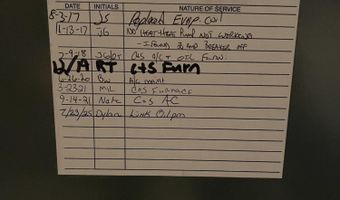 DATE INITIALS NATURE OF SERVICE
8-3-17 JS Replaced Evap. Coil
11-13-17 JG NO HEAT-HEAT PUMP NOT WORKING
- I FOUND 30 AMP BREAKER
7-9-18 C+S A/C
RT C+S Furn
6-26-20 BW A/C maint
3-23-21 MIL C+S Furnace
9-14-21 Nate C+S AC
7/23/25 Dylan